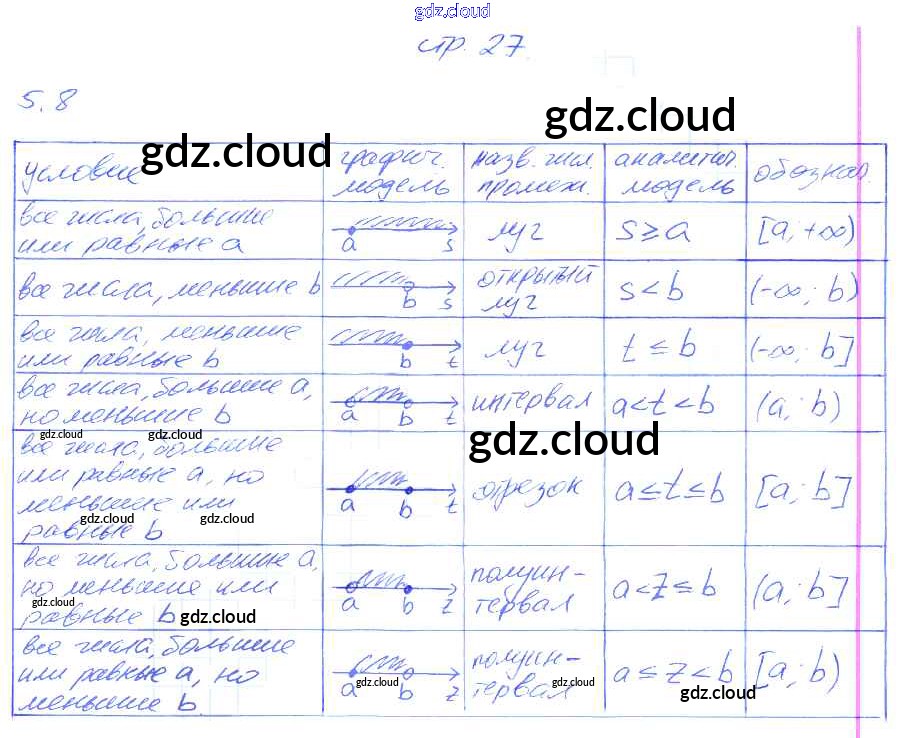 gdz.cloud
стр. 27.
5.8
gdz.cloud
gdz.cloud
условие
графич. модель
назв. чил. промеж.
аналитич. модель
обознач.
все числа, большие
или равные a
a s
луч
s ≥ a
[a, +∞)
все числа, меньшие b
b s
открытый
луч
s < b
(-∞; b)
все числа, меньшие
или равные b
b t
луч
t ≤ b
(-∞; b]
все числа, большие a,
но меньшие b
a b t
интервал
a < t < b
(a; b)
gdz.cloud gdz.cloud
gdz.cloud
все числа, большие
или равные a, но
меньшие или
равные b
gdz.cloud gdz.cloud
a b t
отрезок
a ≤ t ≤ b
[a; b]
все числа, большие a,
но меньшие или
равные b
gdz.cloud
gdz.cloud
a b z
полуин-
тервал
a < z ≤ b
(a; b]
все числа, большие
или равные a, но
меньшие b
a b z
gdz.cloud
полуин-
тервал
gdz.cloud
a ≤ z < b
gdz.cloud
[a; b)